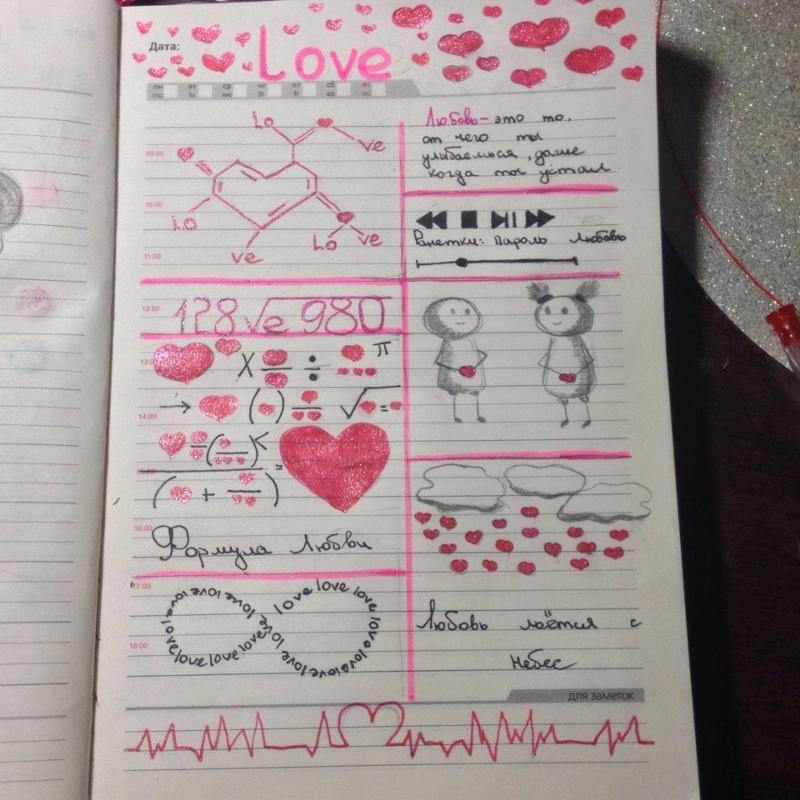 Дата:
Love
пн вт ср чт пт сб вс
mo tu we th fr sa su
09:00
10:00
11:00
Lo
ve
Lo
ve
Lo ve
12:00
128√e 980
13:00
X ÷ π
→ ( ) ÷ √ = -
14:00
÷ ( ) <
( + ) =
16:00
Формула Любви
17:00
love love love love love love love love love love love love love
18:00
Любовь - это то,
от чего ты
улыбаешься, даже
когда ты устал
Ранетки: Пароль Любовь
Любовь льётся с
небес
для заметок